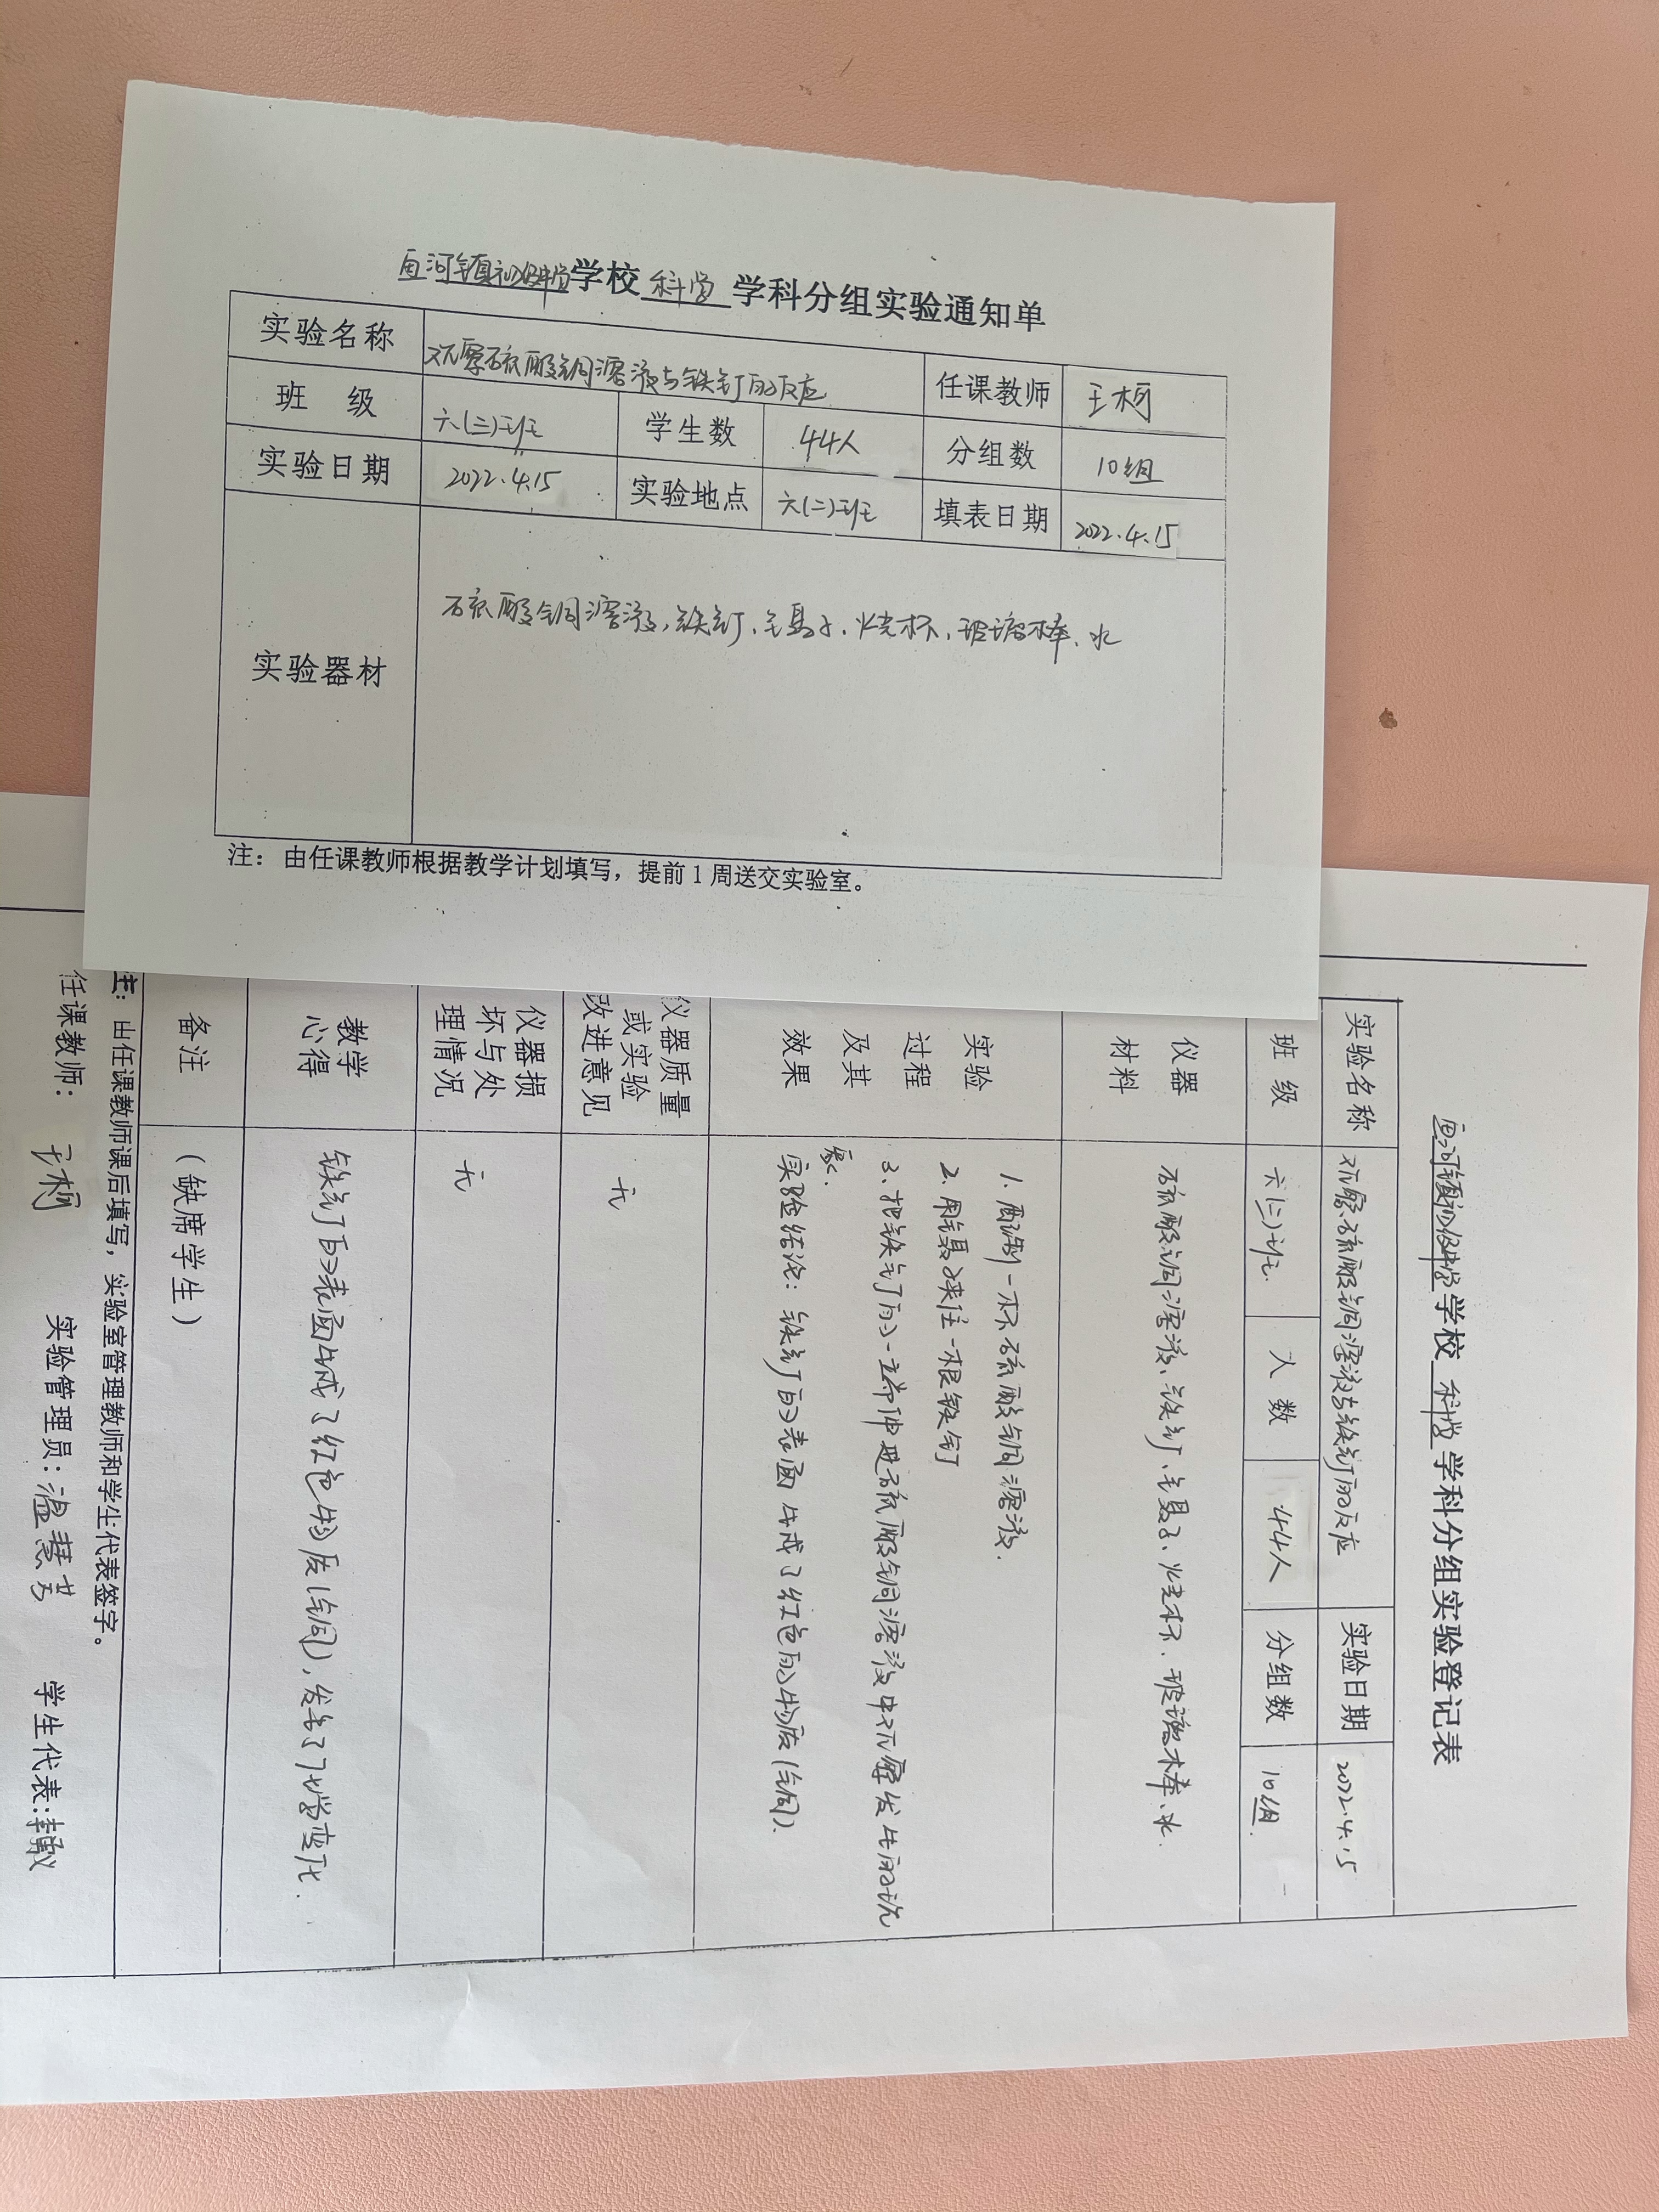 学校 科学 学科分组实验通知单
实验名称 观察硫酸铜溶液与铁钉的反应 任课教师 王柯
班 级 六(三)班 学生数 44人 分组数 10组
实验日期 2022.4.15 实验地点 六(二)班 填表日期 2022.4.15
实验器材 硫酸铜溶液、铁钉、镊子、烧杯、玻璃棒、水
注：由任课教师根据教学计划填写，提前1周送交实验室。
学校 科学 学科分组实验登记表
实验名称 观察硫酸铜溶液与铁钉的反应 实验日期 2022.4.15
班 级 六(二)班. 人 数 44人 分组数 10组.
仪器
材料
硫酸铜溶液、铁钉、镊子、烧杯、玻璃棒、水.
实验
过程
及其
效果
1. 配制一杯硫酸铜溶液.
2. 用镊子夹住一根铁钉
3. 把铁钉的一部伸进硫酸铜溶液中观察发生的现
象.
实验结论：铁钉的表面生成了红色的物质(铜).
仪器质量
或实验
改进意见
无
仪器损
坏与处
理情况
无
教学
心得
铁钉的表面生成了红色物质(铜)，发生了化学变化.
备注 （缺席学生）
注：由任课教师课后填写，实验室管理教师和学生代表签字。
任课教师： 王柯 实验管理员：温慧芳 学生代表：